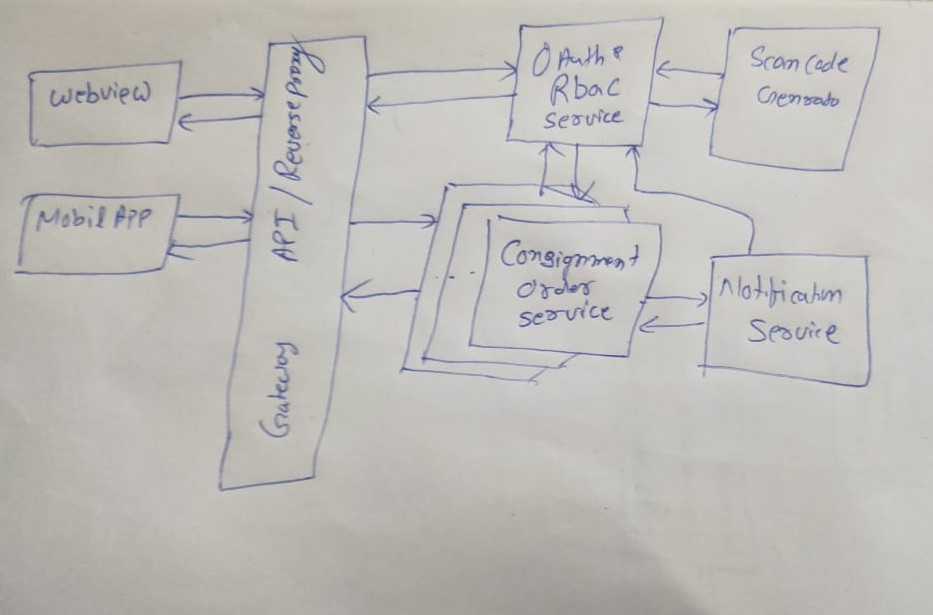 Webview
Mobil APP
API / Reverse Proxy
Gateway
OAuth &
Rbac
service
Scan Code
Genrato
Consignment
Order
service
Notification
Service